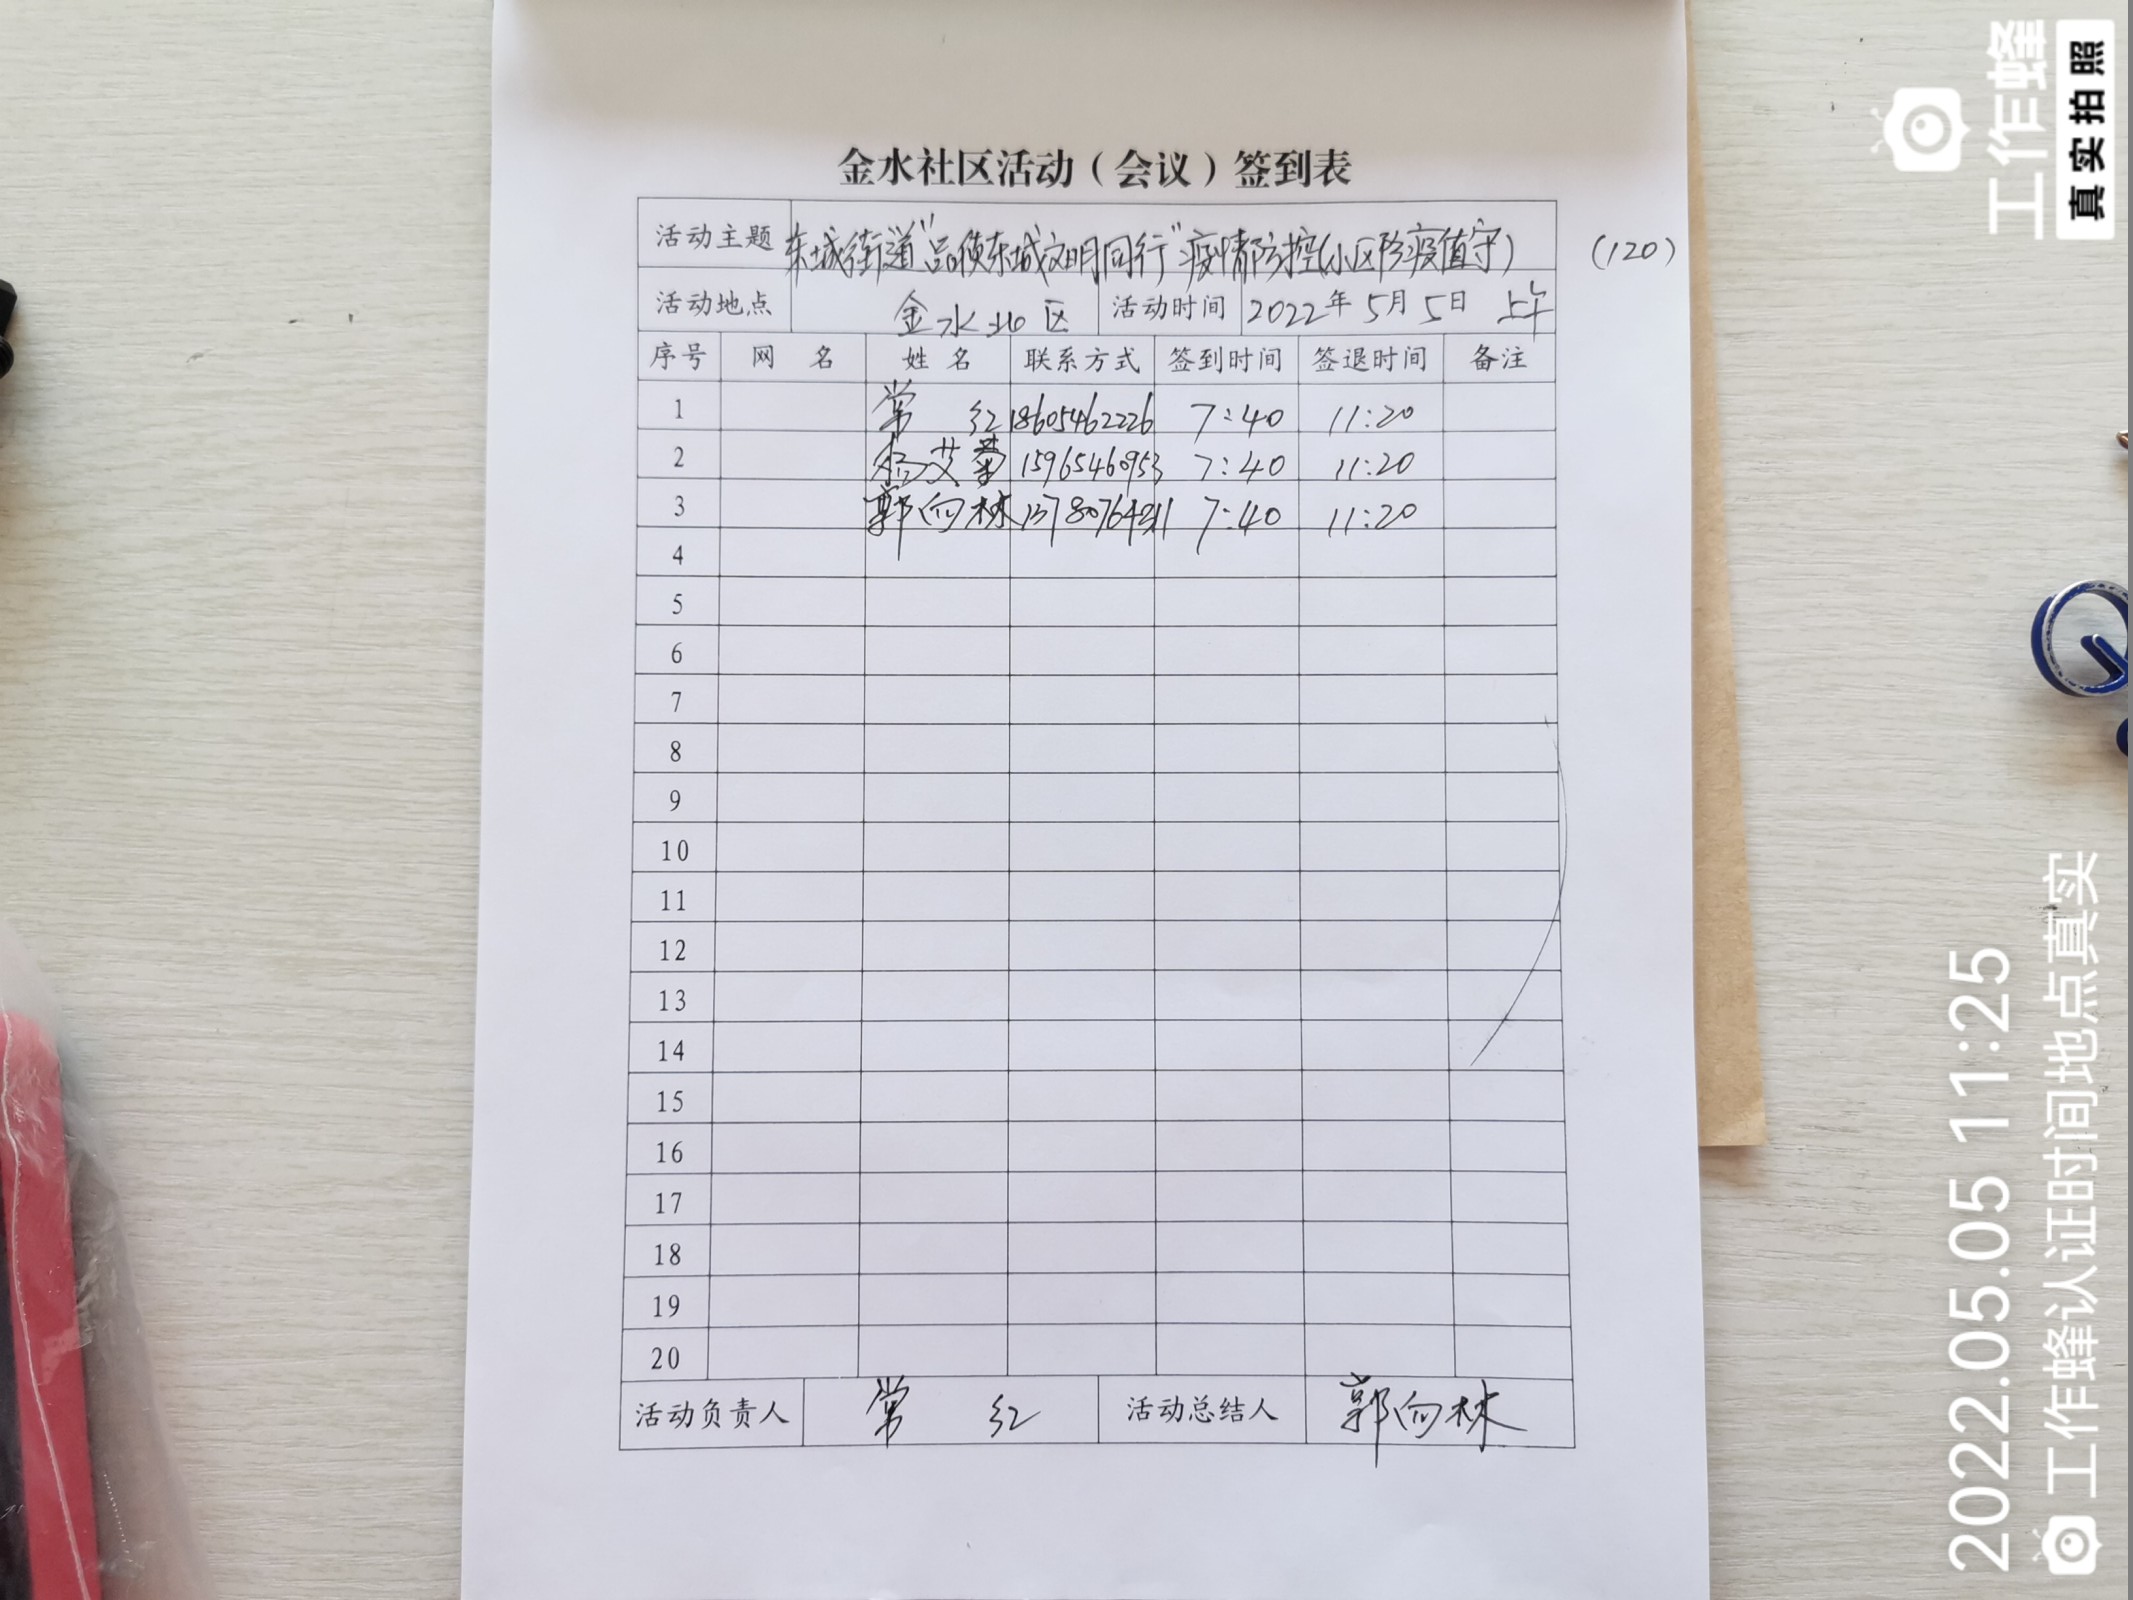 金水社区活动（会议）签到表
活动主题 东城街道"品质东城文明同行"疫情防控(小区防疫值守) (120)
活动地点 金水北区 活动时间 2022年5月5日 上午
序号 网 名 姓 名 联系方式 签到时间 签退时间 备注
1 常 红 18605462226 7:40 11:20
2 杨艾菊 15965460953 7:40 11:20
3 郭向林 7:40 11:20
4
5
6
7
8
9
10
11
12
13
14
15
16
17
18
19
20
活动负责人 常 红 活动总结人 郭向林
工作蜂
真实拍照
2022.05.05 11:25
工作蜂认证时间地点真实